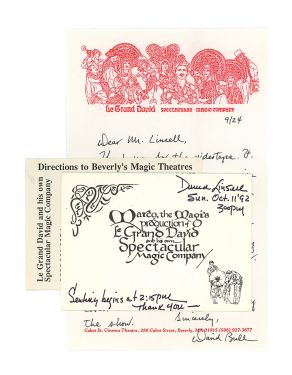 Le Grand David SPECTACULAR MAGIC COMPANY
9/24
Dear Mr. Linsell,
for the videotape. It
Directions to Beverly's Magic Theatres
Le Grand David and his own
Spectacular Magic Company
Linsell
Sun. Oct. 11 '92
3:00pm
Marco, the Magi's
production of
Le Grand David
and his own
Spectacular
Magic Company
Seating begins at 2:15pm
Thank you—
the show.
Sincerely,
David Bull
Cabot St. Cinema Theatre, 286 Cabot Street, Beverly, MA 01915 (508) 927-3677